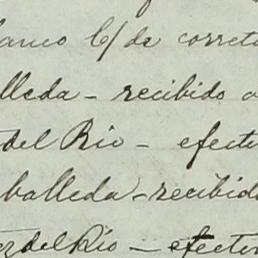 banco C/ de correta
lleda - recibido a
del Rio - efectu
balleda - recibido
ez del Rio - efectu